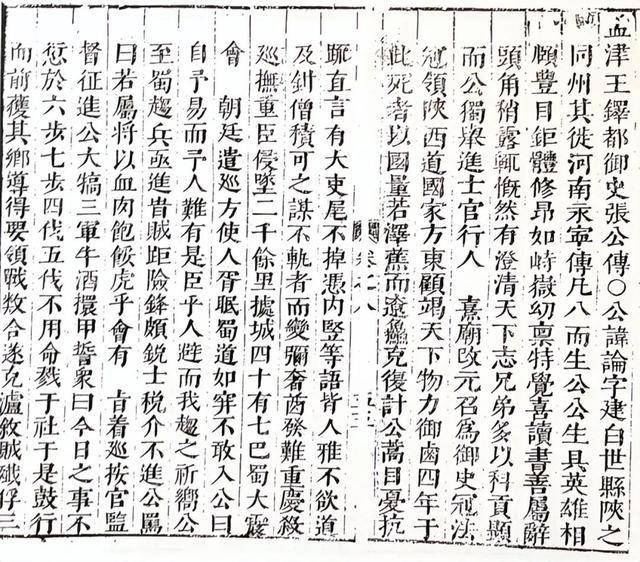 孟津王鐸都御史張公傳○公諱論字建白世縣陝之
同州其徙河南永寧傳凡八而生公公生具英雄相
頤豐目鉅體修昂如峙嶽幼稟特覺喜讀書善屬辭
頭角稍露輒慨然有澄清天下志兄弟多以科貢顯
而公獨舉進士官行人 熹廟改元召為御史冠法
冠領陝西道國家方東顧竭天下物力御鹵四年于
此死者以國量若澤蕉而遼鱻克復計公蒿目憂抗
卷之八
疏直言有大吏尾不掉慿內竪等語皆人雅不欲道
及針僧積可之謀不軌者而變彌奢酋發難重慶殺
廵撫重臣侵墜二千餘里據城四十有七巴蜀大震
會 朝廷遣廵方使人胥眠蜀道如穽不敢入公曰
自予易而予人難有是臣乎人避而我趨之祈嚮公
至蜀趨兵亟進晋賊距險鋒頗銳士稅介不進公罵
曰若屬將以血肉飽餒虎乎會有 旨着廵按官監
督征進公大犒三軍牛酒擐甲誓衆曰今日之事不
愆於六步七步四伐五伐不用命戮于社于是鼓行
而前獲其鄉導得要領戰敎合遂克瀘敘賊殲俘三